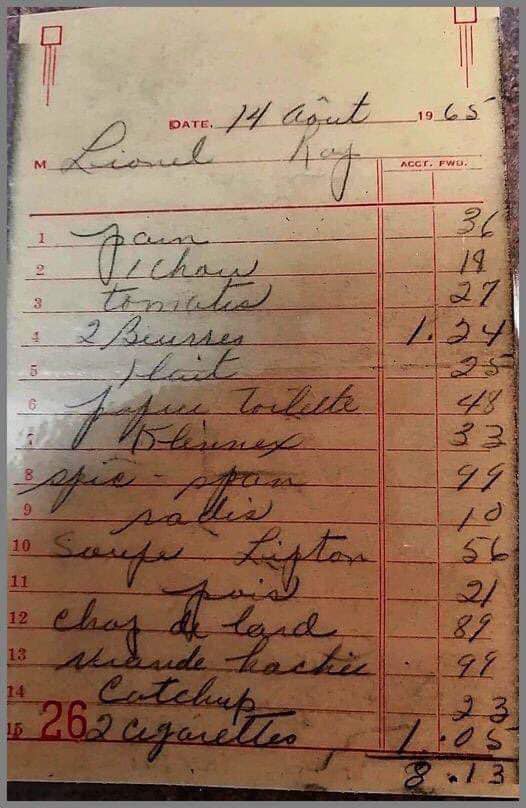 DATE. 14 Aôut 1965
M Lionel Roy ACCT. FWD.
1 pain 36
2 1 chou 18
3 tomates 27
4 2 Beurres 1.24
5 1 lait 25
6 papier toilette 48
7 Kleennex 33
8 spic - span 99
9 radis 10
10 Soupe Lipton 56
11 pois 21
12 chop de lard 89
13 viande hachée 99
14 Catchup 23
15 26 2 cigarettes 1.05
8.13